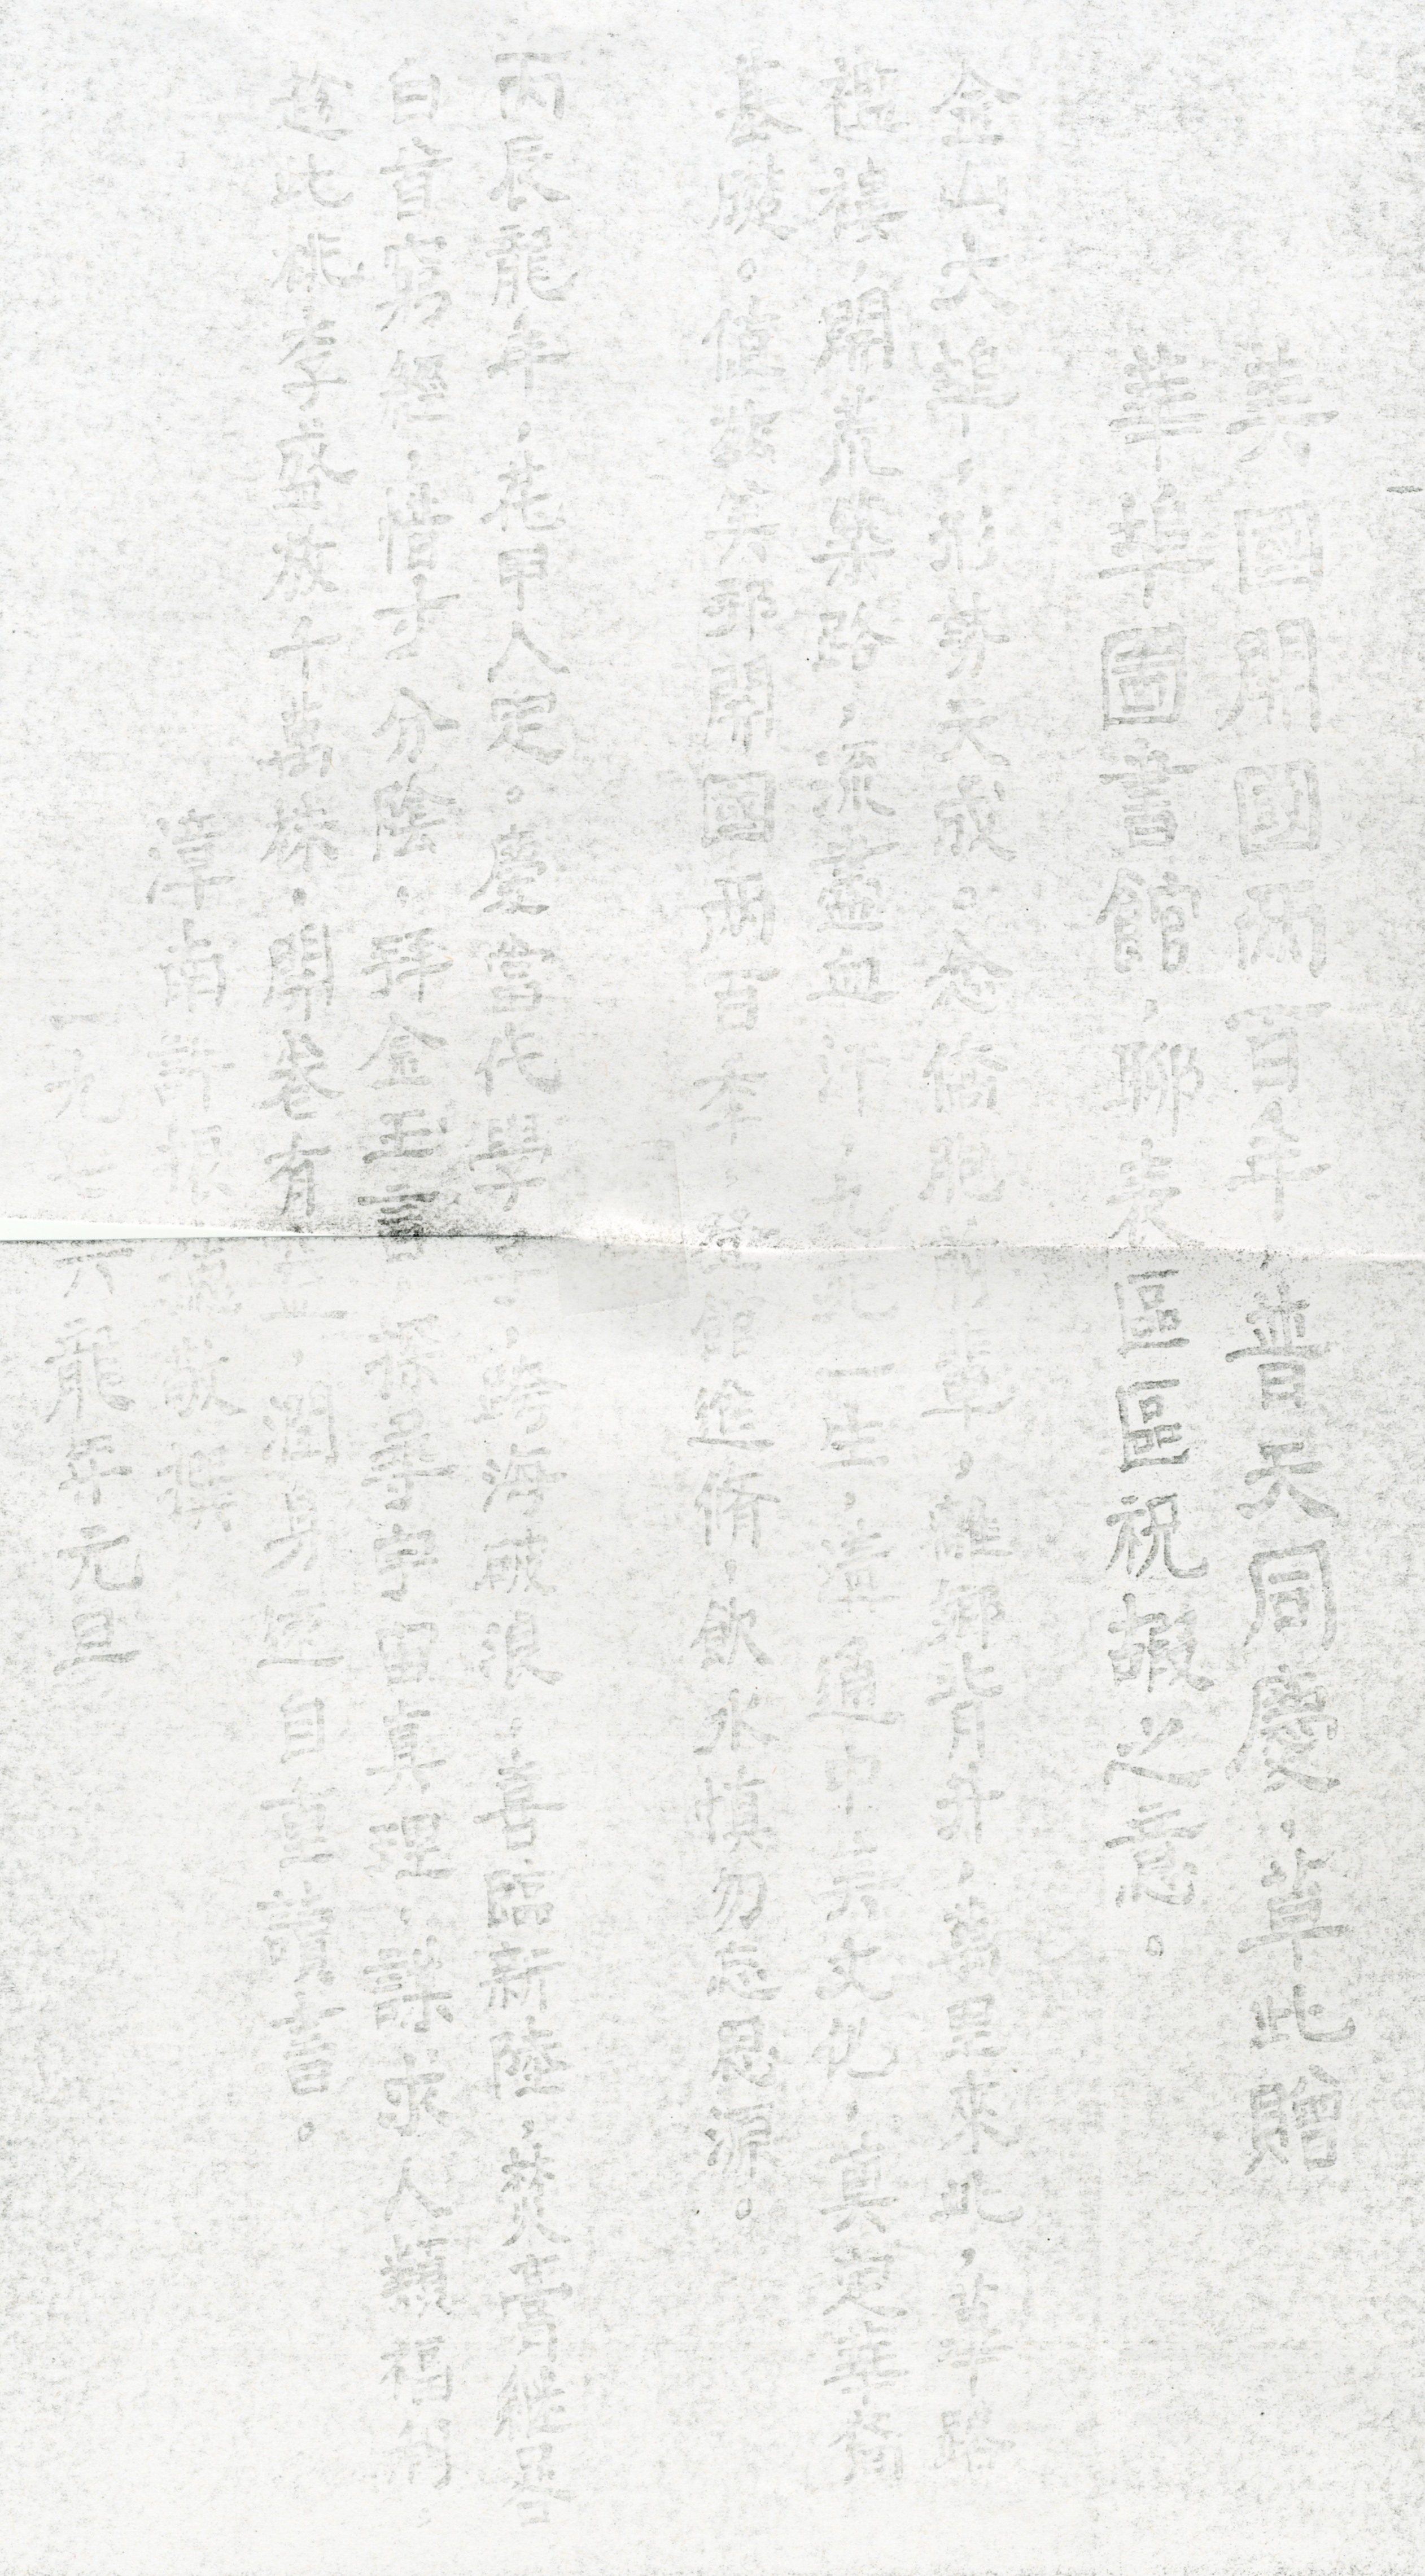 美國開國兩百年，普天同慶，草此贈
華埠圖書館，聊表區區祝嘏之意。
金山大埠，形勢天成。念僑胞前輩，離鄉背井，萬里來此，篳路
襤褸，開荒築路，流盡血汗，一生，溝通中美文化，奠定華裔
基礎。值茲美邦開國兩百年，館進脩，飲水慎勿忘思源。
丙辰龍年，花甲人足。慶當代學，跨海破浪，喜臨新陸，焚膏繼晷
白首窮經，惜寸分陰，拜金玉言，探宇宙真理，謀求人類福利。
趁此桃李盛放千萬株，開卷有益，潤身達自重讀書。
漳南許敬撰
一九七六龍年元旦